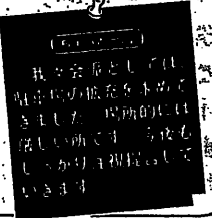 我々会派としては、
駐車場の拡充を求めて
きました。場所的には
厳しい所です。今後も
しっかり注視提言して
いきます